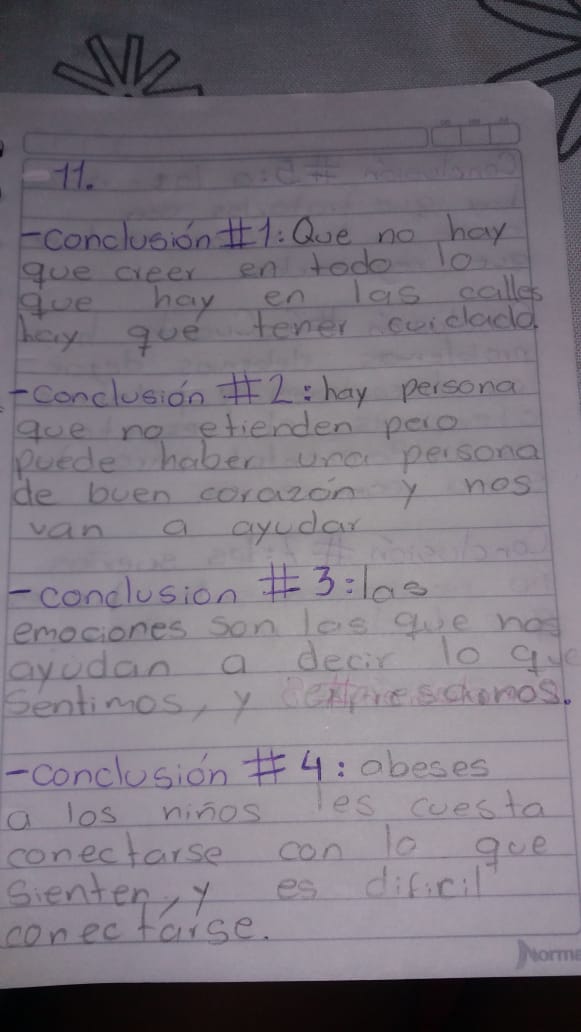 -11.
-conclusión #1: Que no hay
que creer en todo lo
que hay en las calles
hay que tener cuidado.
-conclusión #2: hay persona
que no etienden pero
puede haber una persona
de buen corazón y nos
van a ayudar
-conclusion #3: las
emociones son las que nos
ayudan a decir lo que
Sentimos, y
-conclusión #4: abeses
a los niños les cuesta
conectarse con lo que
sienten, y es dificil
conectarse.
Norma